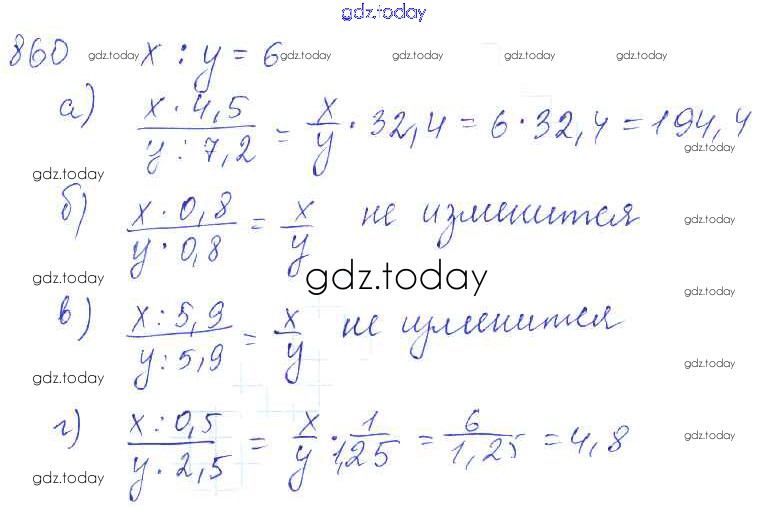 gdz.today
860 gdz.today x : y = 6 gdz.today gdz.today gdz.today gdz.today
а) x · 4,5 / y : 7,2 = x/y · 32,4 = 6 · 32,4 = 194,4
gdz.today gdz.today
б) x · 0,8 / y · 0,8 = x/y не изменится gdz.today
gdz.today gdz.today gdz.today
в) x : 5,9 / y : 5,9 = x/y не изменится
gdz.today gdz.today
г) x : 0,5 / y · 2,5 = x/y · 1/1,25 = 6/1,25 = 4,8 gdz.today
gdz.today